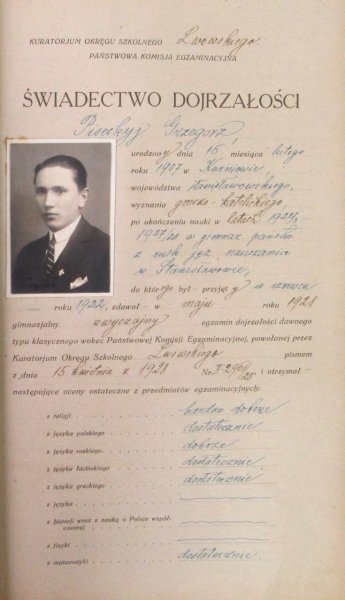 KURATORJUM OKRĘGU SZKOLNEGO Lwowskiego.
PAŃSTWOWA KOMISJA EGZAMINACYJNA
ŚWIADECTWO DOJRZAŁOŚCI
Piseckyj Grzegorz,
urodzony dnia 15 miesiąca lutego
roku 1907 w
województwa stanisławowskiego,
wyznania grecko-katolickiego,
po ukończeniu nauki w latach
1927/28 w gimnaz. państw.
z rusk. jęz. nauczania
w Stanisławowie,
do którego był – przyjęty w czerwcu
roku 1922, zdawał – w maju roku 1928
gimnazjalny zwyczajny egzamin dojrzałości dawnego
typu klasycznego wobec Państwowej Komisji Egzaminacyjnej, powołanej przez
Kuratorjum Okręgu Szkolnego Lwowskiego pismem
z dnia 15 kwietnia r. 1928 Nr. i otrzymał –
następujące oceny ostateczne z przedmiotów egzaminacyjnych:
z religji bardzo dobrze
z języka polskiego dostatecznie
z języka ruskiego dobrze
z języka łacińskiego dostatecznie
z języka greckiego dostatecznie
z języka
z historji wraz z nauką o Polsce współ-
czesnej
z fizyki
z matematyki dostatecznie.